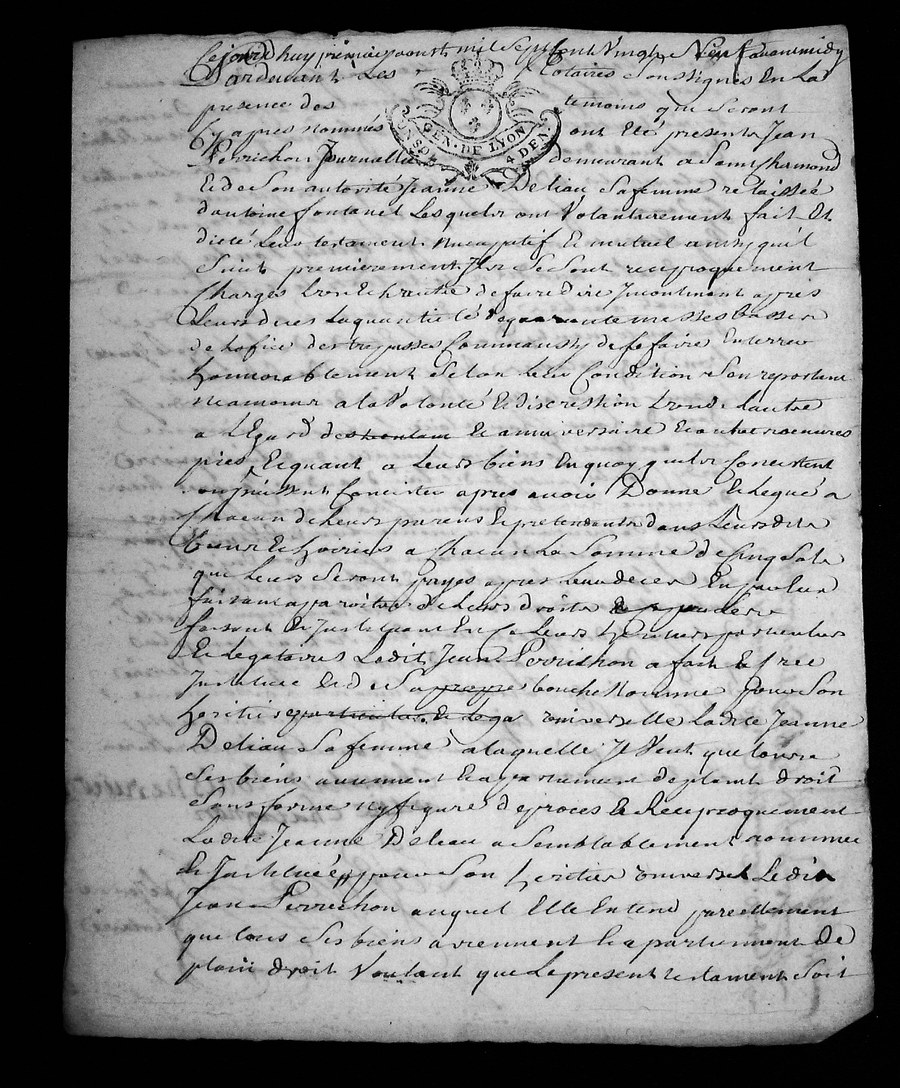 Cejourdhuy premier aoust mil Sept Cent Vingt Neuf avant midy
Pardevant Les Notaires Soussignes En La
presence des temoins qui Seront
Cy apres nommés ont Ete presents Jean
Perrichon Journallier demeurant a Saint Chamond
GEN. DE LYON
4 DEN.
Et de Son autorité Jeanne Deliau Sa femme relaissée
dantoine fontanet Lesquels ont Volontairement fait Et
dicté Leur testament Nuncupatif Et mutuel ainsy quil
Suit premierement Ils Se Sont reciproquement
Charges Lun Et Lautre de faire dire Incontinent apres
Leurs deces La quantité de quarante messes basses
de Lofice des trepasses Comme aussy de Se faire Enterrer
honnorablement Selon Leur Condition Sen reportant
Neamoins a la Volonté Et discrestion Lun de Lautre
a LEgard des Et anniversaire Et autres oeuvres
pies, Et quant a Leurs biens En quoy quils Concistent
ou puissent Concister apres avoir Donné Et Legué a
Chacun de Leurs parens Et pretendants dans Leursdits
biens Et hoiries a Chacun La Somme de Cinq Sols
que Leurs Seront payes apres Leur deces En par Eux
faisant aparoitre de Leurs droits
faisant Et Instituant En Ce Leurs heritiers particuliers
Et Legataires Ledit Jean Perrichon a fait Et Cree
Institue Et de Sa propre bouche Nommé pour Son
heritiere particuliere Et Lega universelle Ladite Jeanne
Deliau Sa femme a laquelle Il Veut que tous
Ses biens aviennent Et apartiennent de plaint droit
Sans forme Ny figure de proces Et Reciproquement
Ladite Jeanne Deliau a Semblablement nommé
Et Institué pour Son heritier universel Ledit
Jean Perrichon auquel Elle Entend pareillement
que tous Ses biens aviennent Et apartiennent De
plain droit Voulant que Le present testament Soit